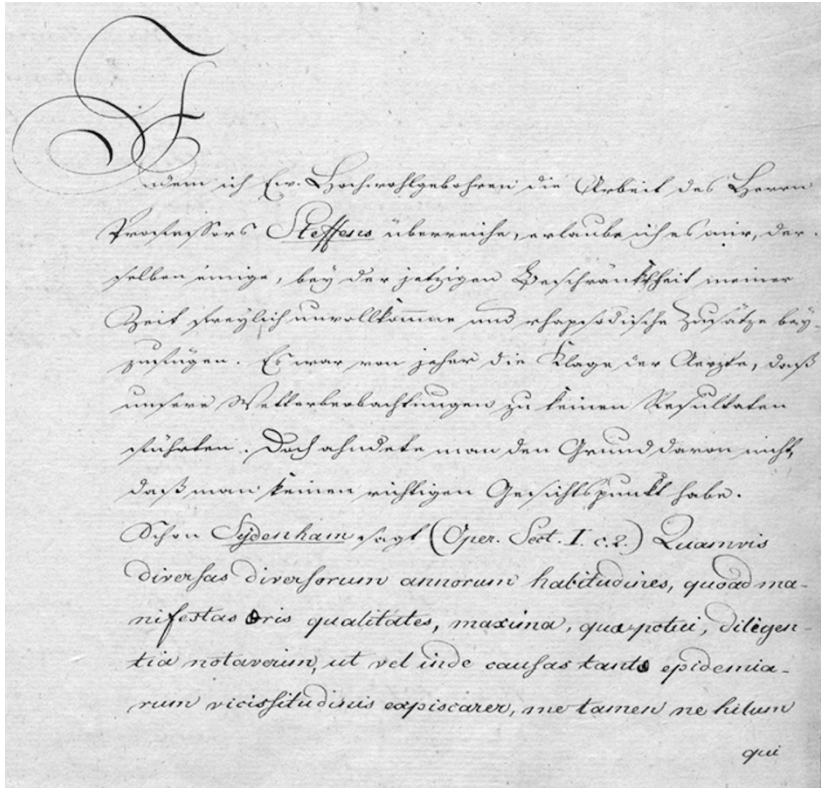 Indem ich Ew. Hochwohlgebohren die Arbeit des Herrn
Professors Steffens überreiche, erlaube ich es mir, der-
selben einige, bey der jetzigen Beschränktheit meiner
Zeit freylich unvollkommne und rhapsodische Zusätze bey-
zufügen. Es war von jeher die Klage der Aerzte, daß
unsere Wetterbeobachtungen zu keinen Resultaten
führten. Doch ahndete man den Grund davon nicht,
daß man keinen richtigen Gesichtspunkt habe.
Schon Sydenham sagt (Oper. Sect. I. c. 2.) Quamvis
diversas diversorum annorum habitudines, quoad ma-
nifestas aëris qualitates, maxima, qua potui, diligen-
tia notaverim, ut vel inde causas tantæ epidemia-
rum vicissitudinis expiscarer, me tamen ne hilum
qui